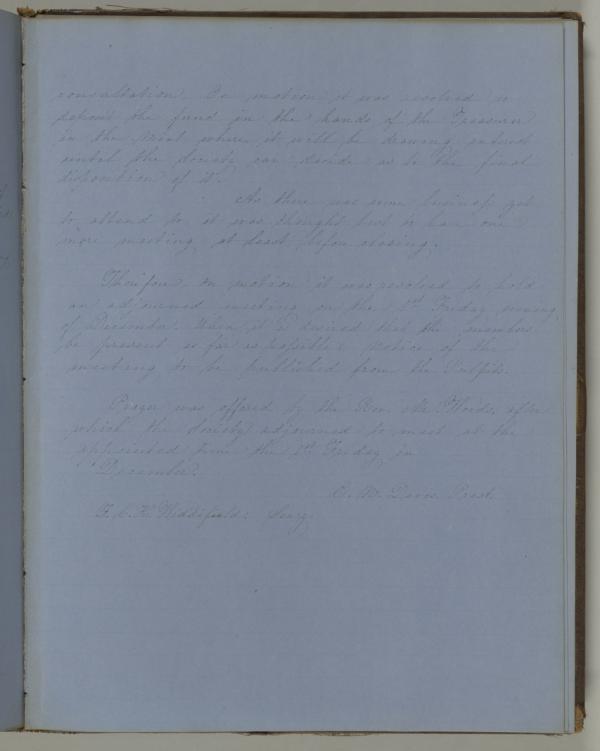 consultation. On motion it was resolved to
deposit the fund in the hands of the Treasurer
in the where it will be drawing interest
until the Society can decide as to the final
disposition of it.
As there was some business yet
to attend to it was thought best to have one
more meeting at least before closing.
Therefore, on motion it was resolved to hold
an adjourned meeting on the 1st Friday evening
of December. When it is desired that the members
be present as far as possible; notice of the
meeting to be published from the Pulpits.
Prayer was offered by the Rev. Mr. after
which the Society adjourned to meet at the
appointed time the 1st Friday in
December.
Davis, Prest.
F. C. H. Secry.